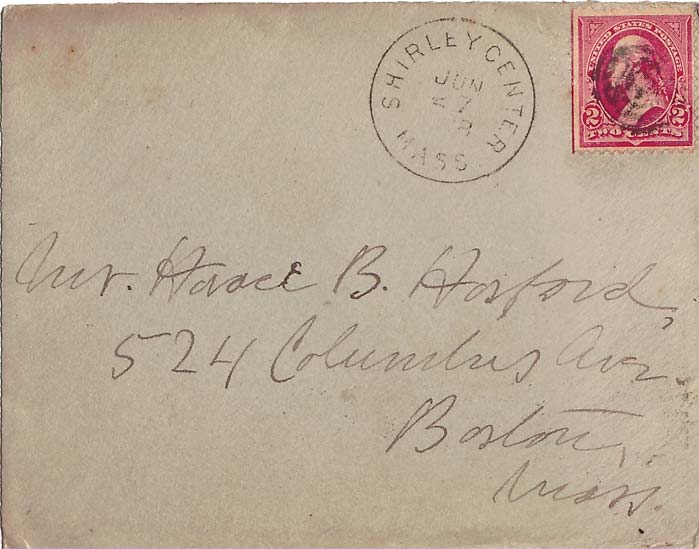 SHIRLEY CENTER
JUN
MASS
UNITED STATES POSTAGE
2 2
TWO CENTS
Mr. Horace B. Hosford,
524 Columbus Ave.
Boston,
Mass.